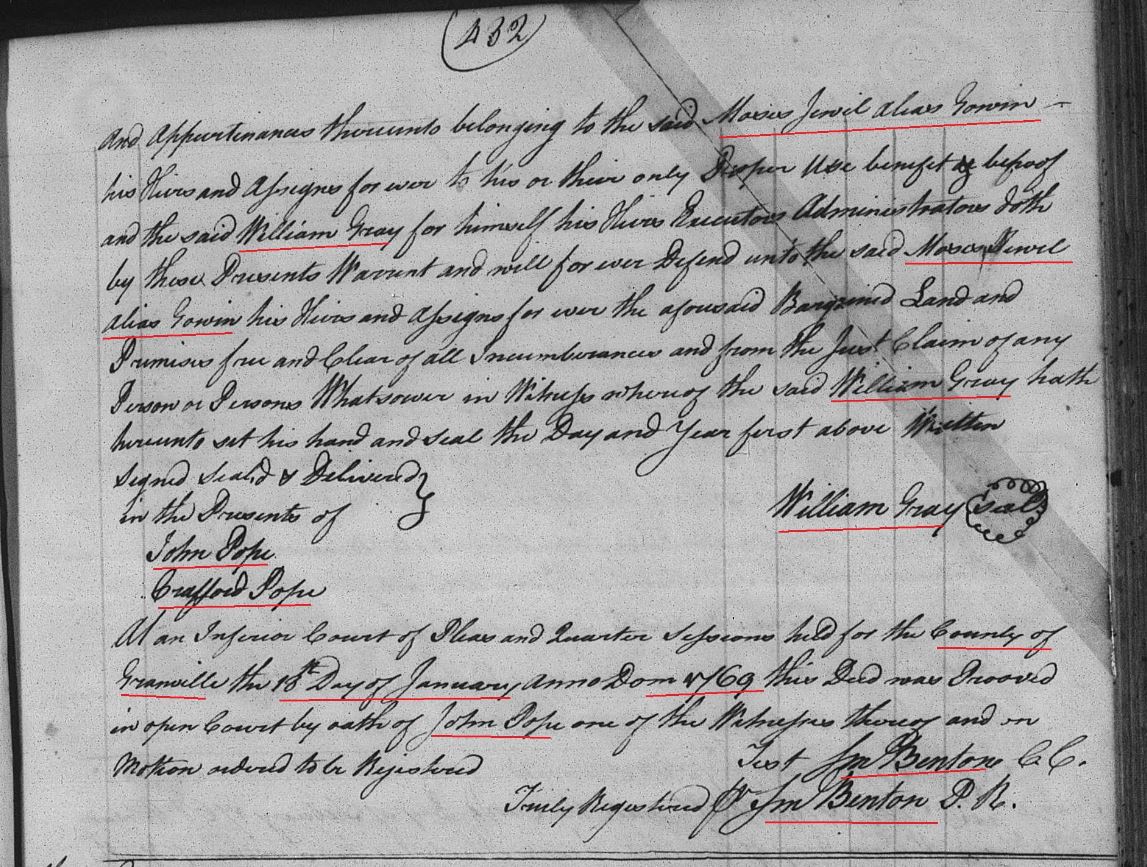 (432)
and Appurtinances thereunto belonging to the said Moses Jewil alias Gowin
his Heirs and Assignes for ever to his or their only Proper Use benefit & behoof
and the said William Gray for himself his Heirs Executors Administrators doth
by these Presents Warrent and will for ever Defend unto the said Moses Jewil
alias Gowin his Heirs and Assigns for ever the aforesaid Bargained Land and
Premises free and Clear of all Incumberances and from the Just Claim of any
Person or Persons Whatsoever in Witness whereof the said William Gray hath
hereunto set his hand and seal the Day and Year first above Written
Signed Seal'd & Delivered
in the Presents of
William Gray (seal)
John Pope
Crafford Pope
At an Inferior Court of Pleas and Quarter Sessions held for the County of
Granville the 18th Day of January Anno Dom 1769 this Deed was Prooved
in open Court by oath of John Pope one of the Witnesses thereof and on
Motion ordered to be Rejestered
Test Sm Benton C.C.
Truly Registered Pr Sm Benton P. R.